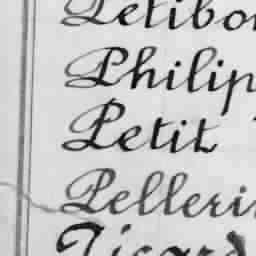 Petibo
Philip
Petit
Pelleri
Picard